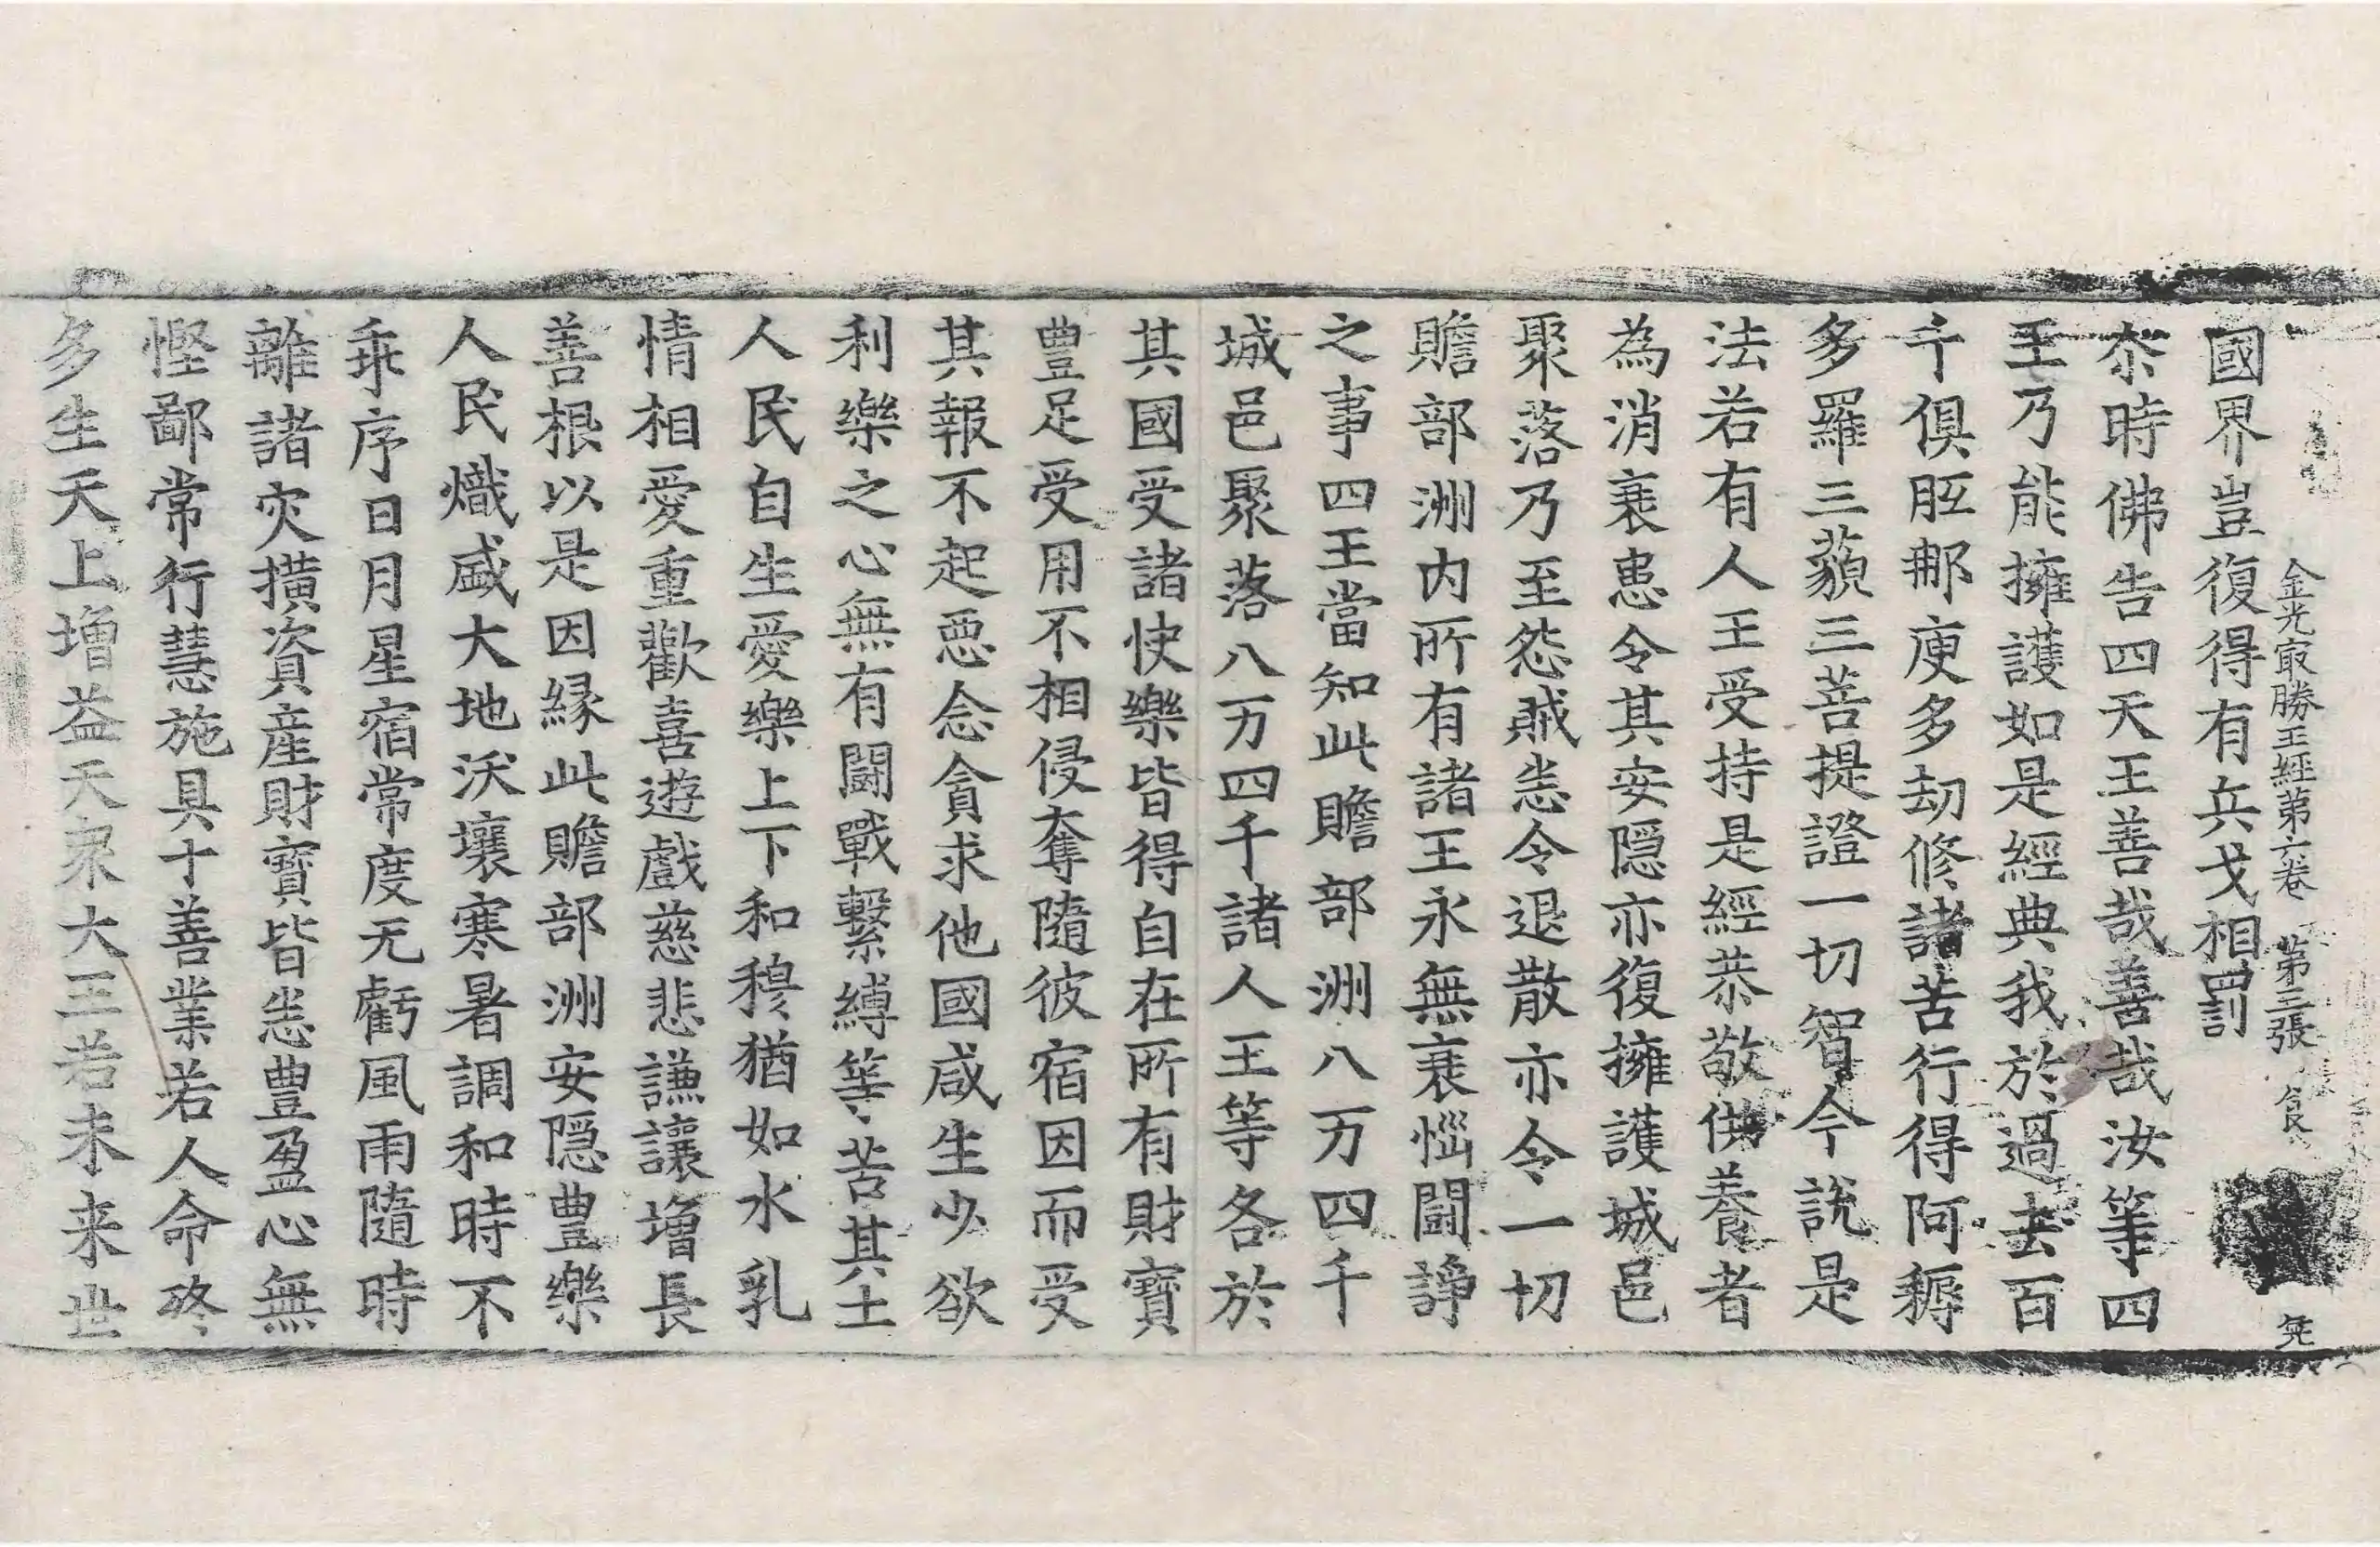 金光㝡勝王經第六卷　第三張　食
國界豈復得有兵戈相罰
尒時佛告四天王善哉善哉汝等四
王乃能擁護如是經典我於過去百
千俱胝那庾多劫修諸苦行得阿耨
多羅三藐三菩提證一切智今說是
法若有人王受持是經恭敬供養者
為消衰患令其安隱亦復擁護城邑
聚落乃至怨賊悉令退散亦令一切
贍部洲内所有諸王永無衰惱鬪諍
之事四王當知此贍部洲八万四千
城邑聚落八万四千諸人王等各於
其國受諸快樂皆得自在所有財寶
豊足受用不相侵奪隨彼宿因而受
其報不起惡念貪求他國咸生少欲
利樂之心無有鬪戰繫縛等苦其土
人民自生愛樂上下和穆猶如水乳
情相愛重歡喜遊戲慈悲謙讓增長
善根以是因緣此贍部洲安隱豊樂
人民熾盛大地沃壤寒暑調和時不
乖序日月星宿常度无虧風雨隨時
離諸灾撗資産財寶皆悉豊盈心無
慳鄙常行慧施具十善業若人命終
多生天上增益天衆大王若未来世